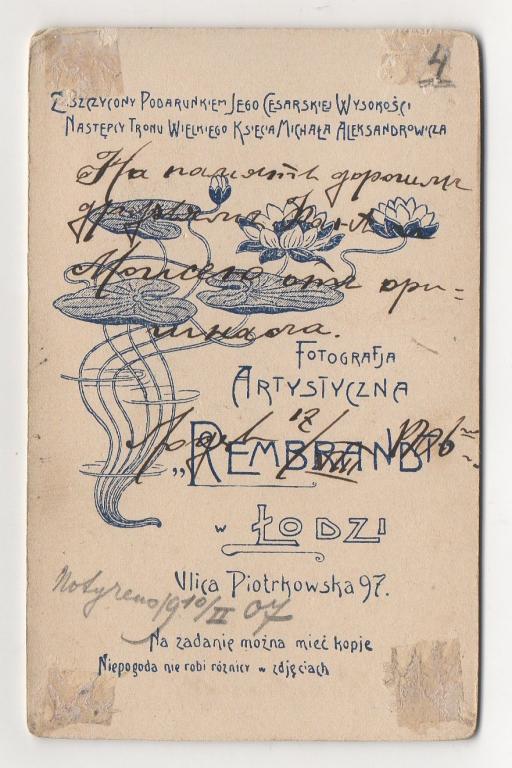 4
Zaszczycony Podarunkiem Jego Cesarskiej Wysokości
Następcy Tronu Wielkiego Księcia Michała Aleksandrowicza
На память дорогимъ
друзьямъ
отъ ори-
гинала.
Fotografja
Artystyczna
„Rembrandt"
w Łodzi
Ulica Piotrkowska 97.
10/II 07
Na żądanie można mieć kopje
Niepogoda nie robi różnicy w zdjęciach